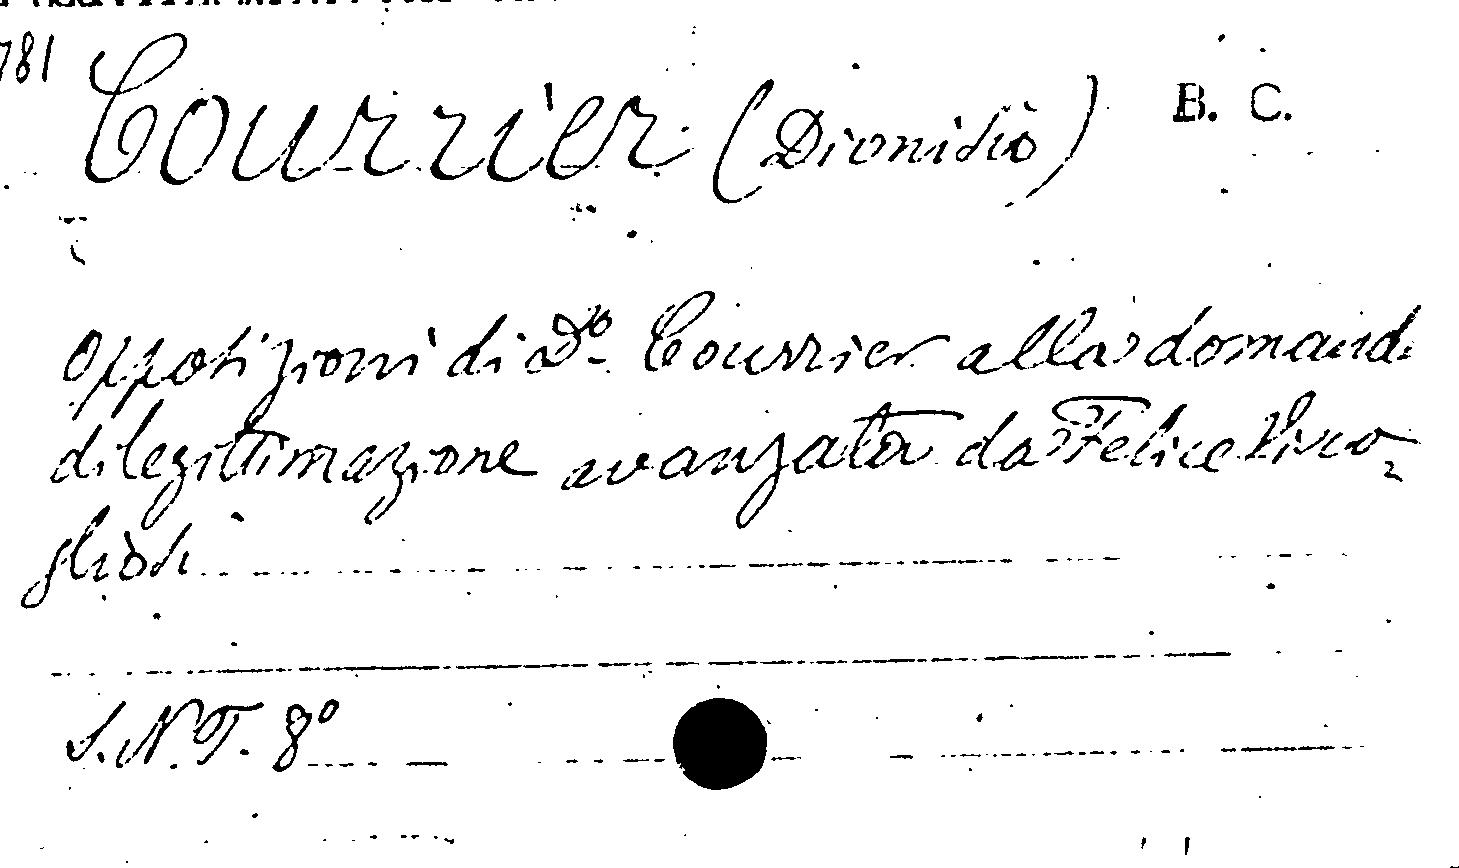 781
Courrier (Dionisio) B. C.
Opposizioni di Do. Courrier alla domand
di legittimazione avanzata da Felice
gliosi
S. N. T. 8º